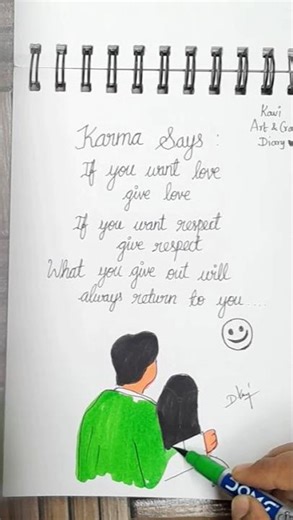 Karma Says :
If you want love
give love
If you want respect
give respect
What you give out will
always return to you ...
Kavi
Art &
Diary
DOMS